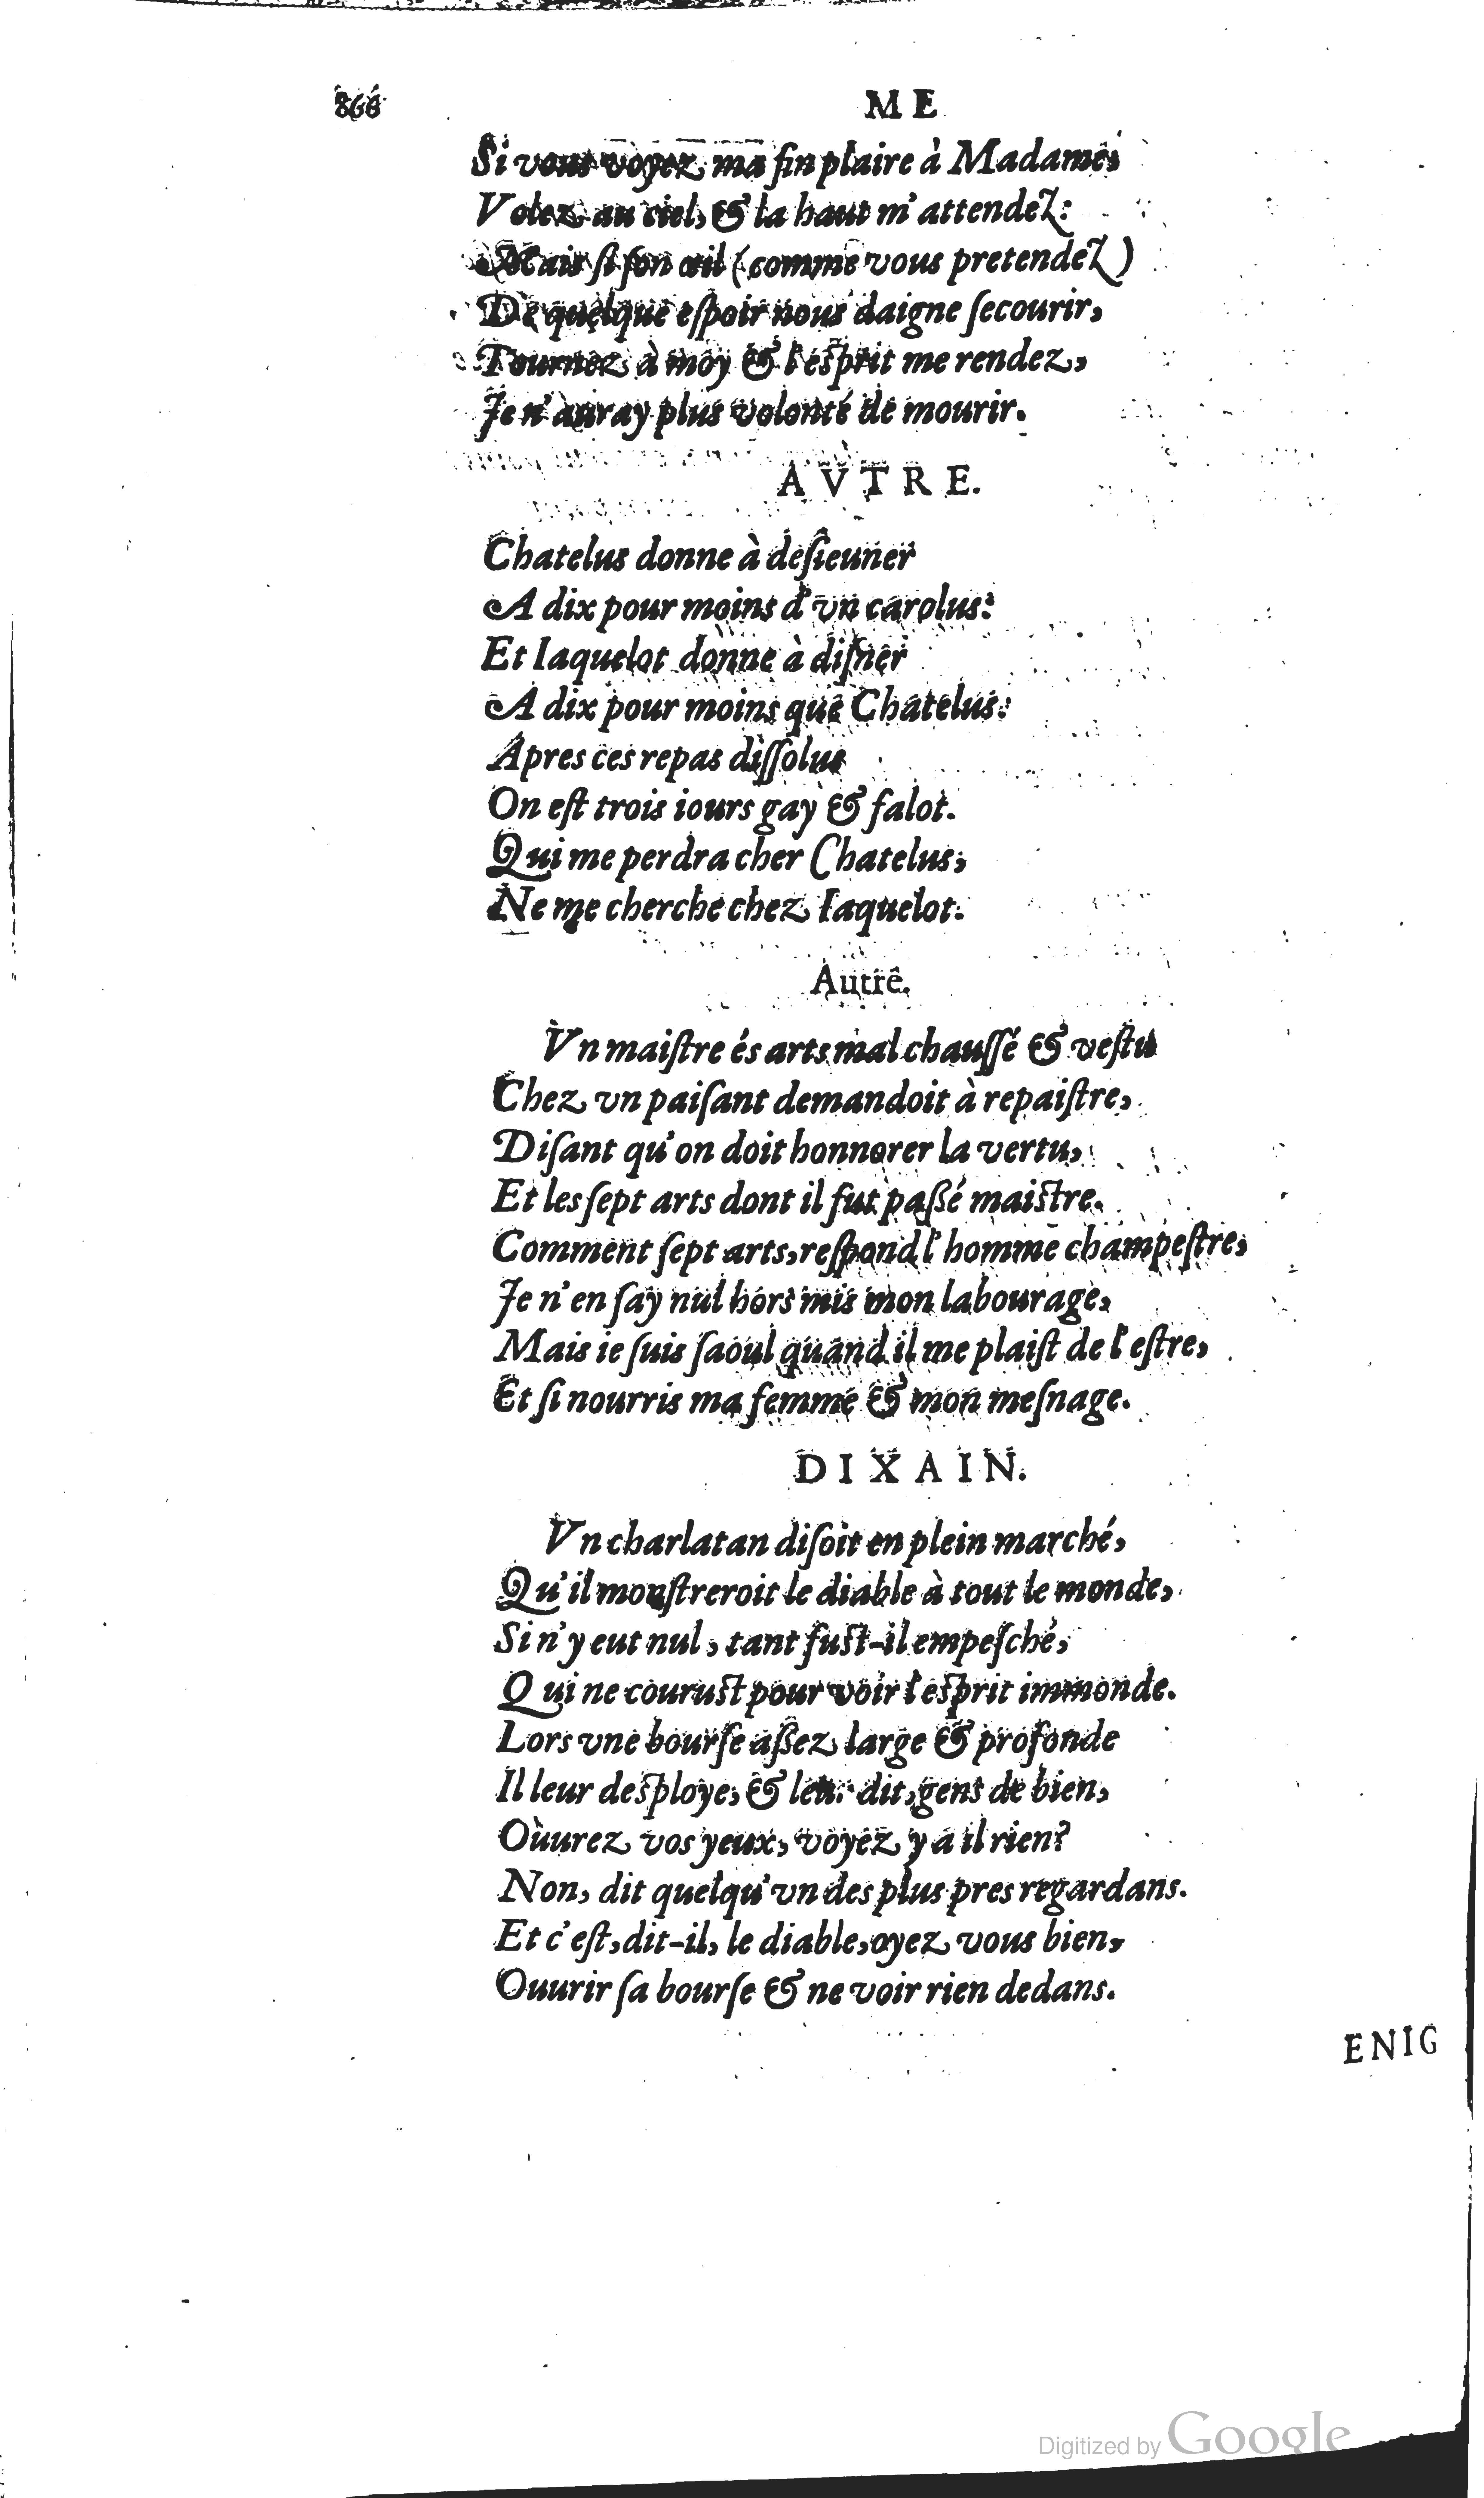 866 ME
Si vous voyez ma fin plaire à Madame,
Volez au ciel, & la haut m'attendez:
Mais si son œil (comme vous pretendez)
De quelque eſpoir nous daigne ſecourir,
Tournez à moy & l'eſprit me rendez,
Je n'auray plus volonté de mourir.
AVTRE.
Chatelus donne à deſieuner
A dix pour moins d'vn carolus:
Et Iaquelot donne à diſner
A dix pour moins que Chatelus:
Apres ces repas diſſolus
On eſt trois iours gay & falot.
Qui me perdra cher Chatelus,
Ne me cherche chez Iaquelot.
Autre.
Vn maiſtre és arts mal chauſſé & veſtu
Chez vn paiſant demandoit à repaiſtre,
Diſant qu'on doit honnorer la vertu,
Et les ſept arts dont il fut paßé maiſtre.
Comment ſept arts, reſpond l'homme champeſtre,
Je n'en ſay nul hors mis mon labourage,
Mais ie ſuis ſaoul quand il me plaiſt de l'eſtre,
Et ſi nourris ma femme & mon meſnage.
DIXAIN.
Vn charlatan diſoit en plein marché,
Qu'il monſtreroit le diable à tout le monde,
Si n'y eut nul, tant fuſt-il empeſché,
Qui ne couruſt pour voir l'eſprit immonde.
Lors vne bourſe aßez large & profonde
Il leur deſploye, & leur dit, gens de bien,
Ouurez vos yeux, voyez y a il rien?
Non, dit quelqu'vn des plus pres regardans.
Et c'eſt, dit-il, le diable, oyez vous bien,
Ouurir ſa bourſe & ne voir rien dedans.
ENIG
Digitized by Google